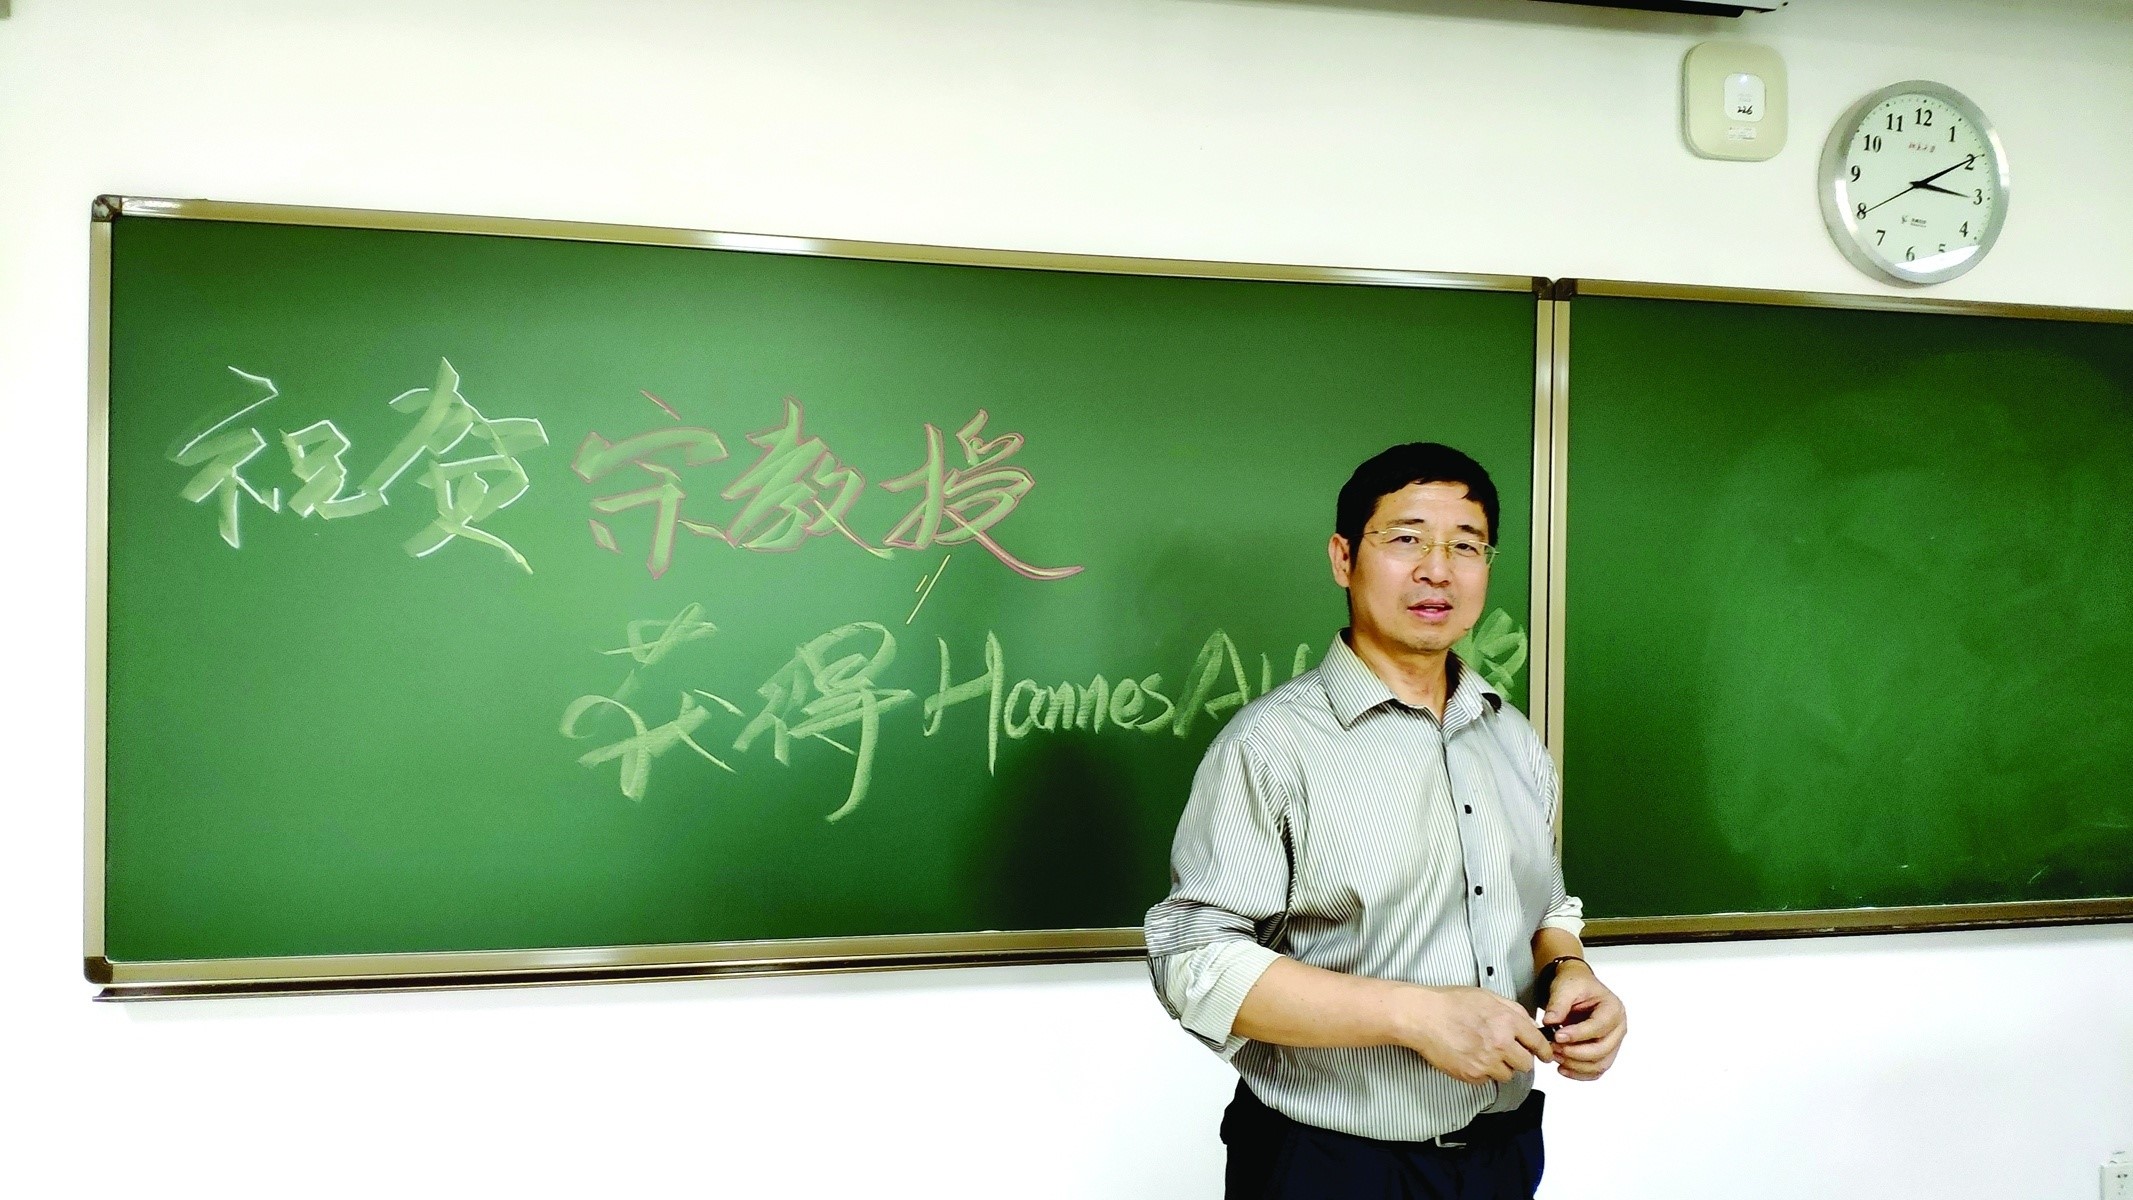 祝贺宗教授
获得Hannes Al 奖
226
12
1
2
3
4
5
6
7
8
9
10
11